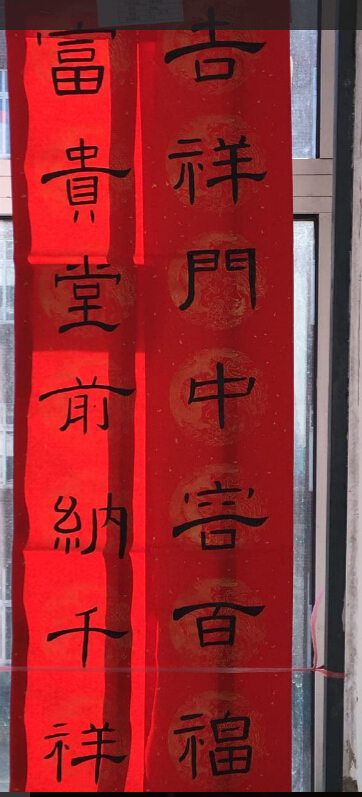 吉祥門中百福
富貴堂前納千祥